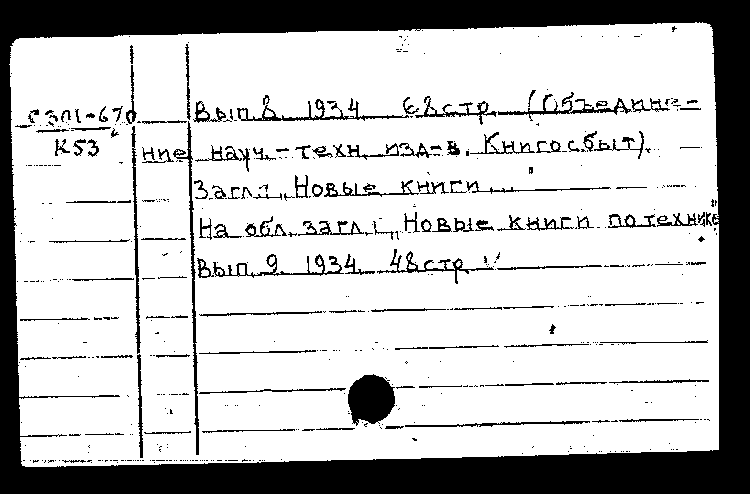 С301-670 Вып. 8. 1934. 68стр. (Объедине-
К53 ние науч.-техн. изд-в. Книгосбыт).
Загл: „Новые книги...
На обл. загл: „Новые книги по технике"
Вып. 9. 1934. 48стр.